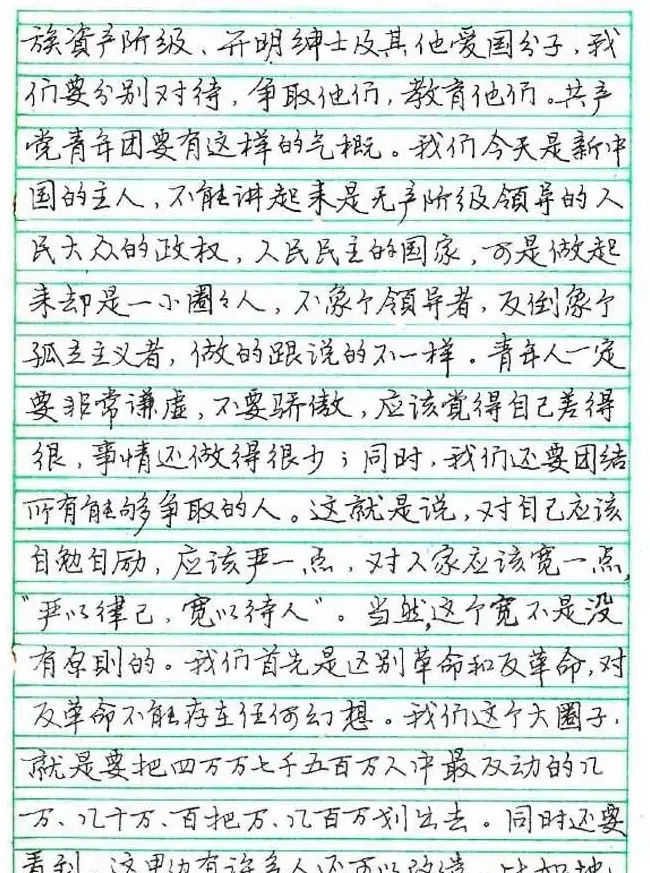 族資产阶级、开明绅士及其他爱国分子,我
们要分别对待,争取他们,教育他们。共产
党青年团要有这样的气概。我们今天是新中
国的主人,不能讲起来是无产阶级領导的人
民大众的政权,人民民主的国家,可是做起
来却是一小圈々人,不象个領导者,反倒象个
孤立主义者,做的跟说的不一样。青年人一定
要非常谦虚,不要骄傲,应该觉得自己差得
很,事情还做得很少;同时,我们还要团结
所有能够争取的人。这就是说,对自己应该
自勉自励,应该严一点,对人家应该宽一点,
“严以律己,宽以待人”。当然,这个宽不是没
有原則的。我们首先是区别革命和反革命,对
反革命不能存在任何幻想。我们这个大圈子,
就是要把四万万七千五百万人中最反动的几
万、几十万、百把万、几百万划出去。同时还要
看到,这里边有许多人还可以改造,